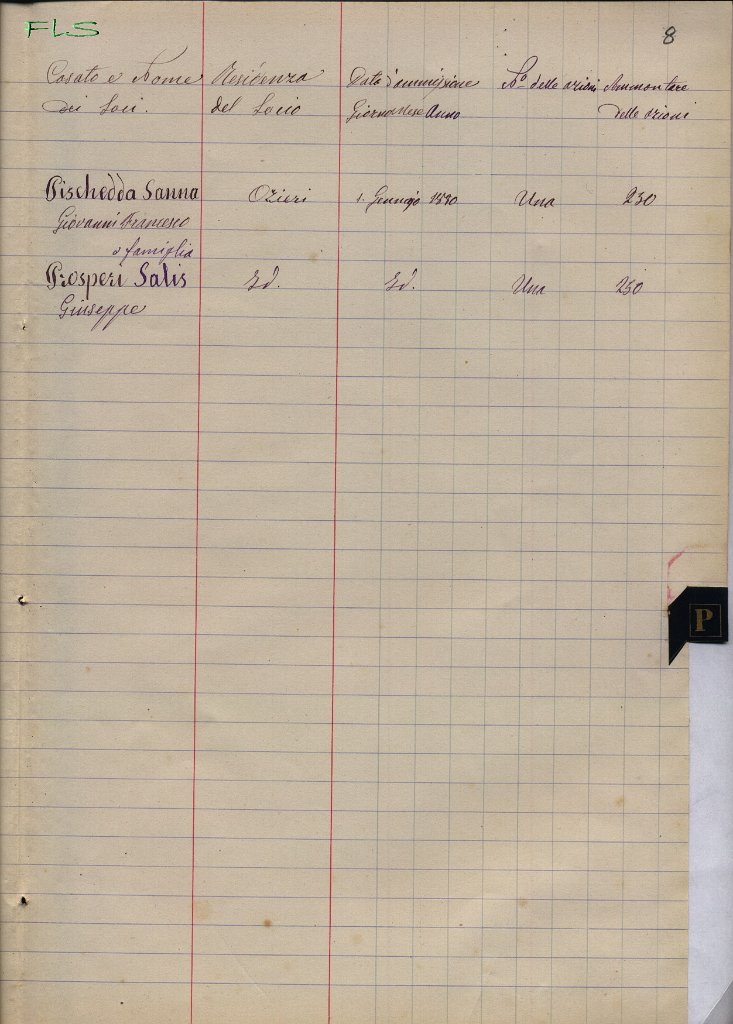 FLS
8
Casato e Nome Residenza Data d'ammissione N.o delle azioni Ammontare
dei Soci. del Socio Giorno Mese Anno delle azioni
Pischedda Sanna Ozieri 1. Gennajo 1890 Una 250
Giovanni Francesco
e famiglia
Prosperi Salis Id. Id. Una 250
Giuseppe
P